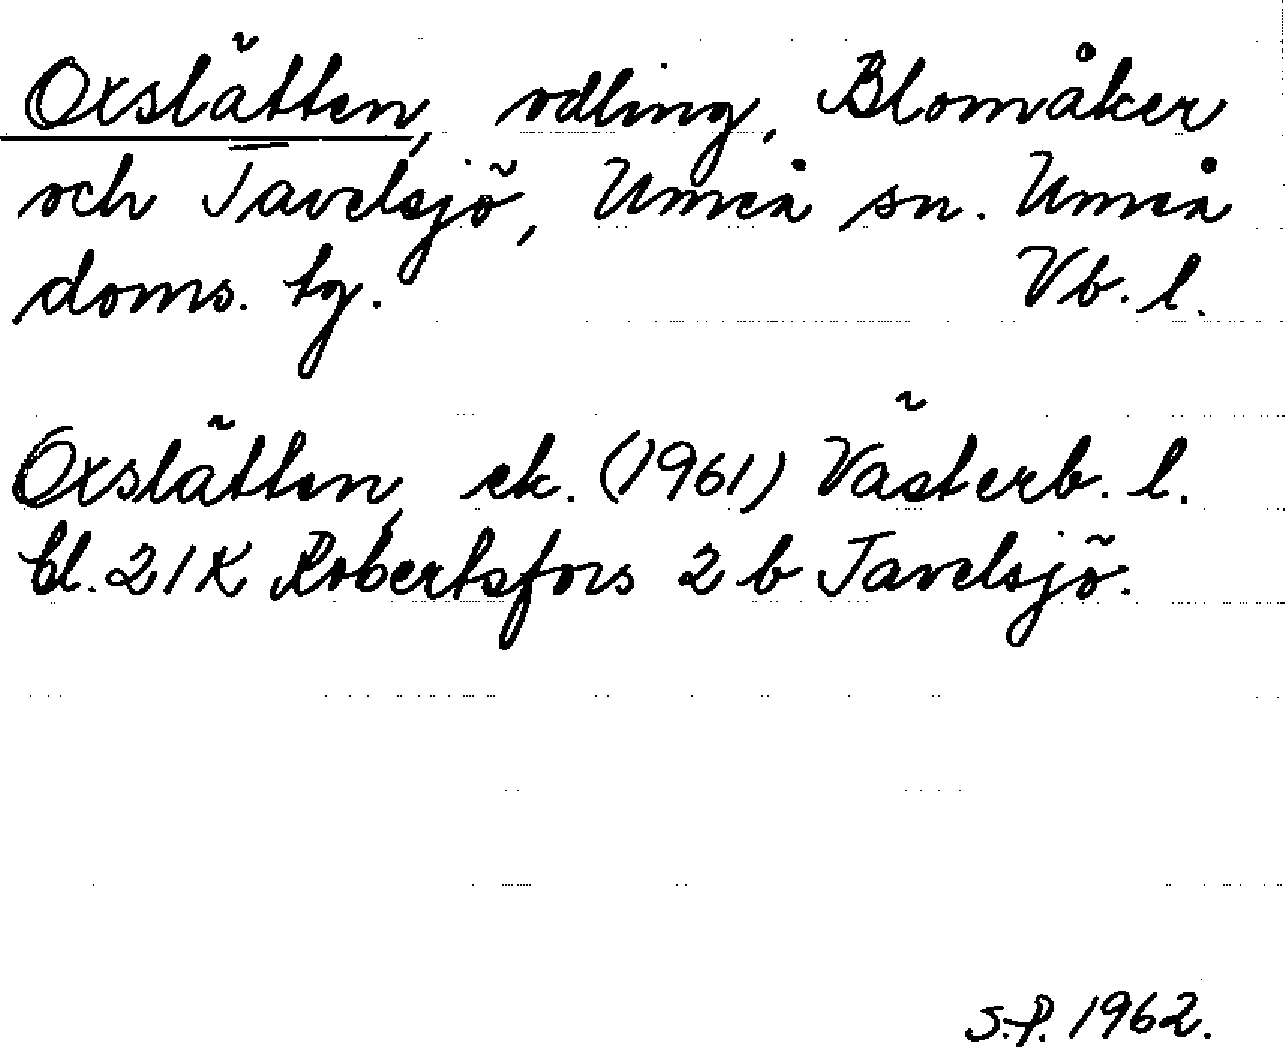 Oxslätten, odling, Blomåker
och Tavelsjö, Umeå sn. Umeå
doms. tg. Vb. l.
Oxslätten, ek. (1961) Västerb. l.
bl. 21K Robertsfors 2 b Tavelsjö.
S.P. 1962.